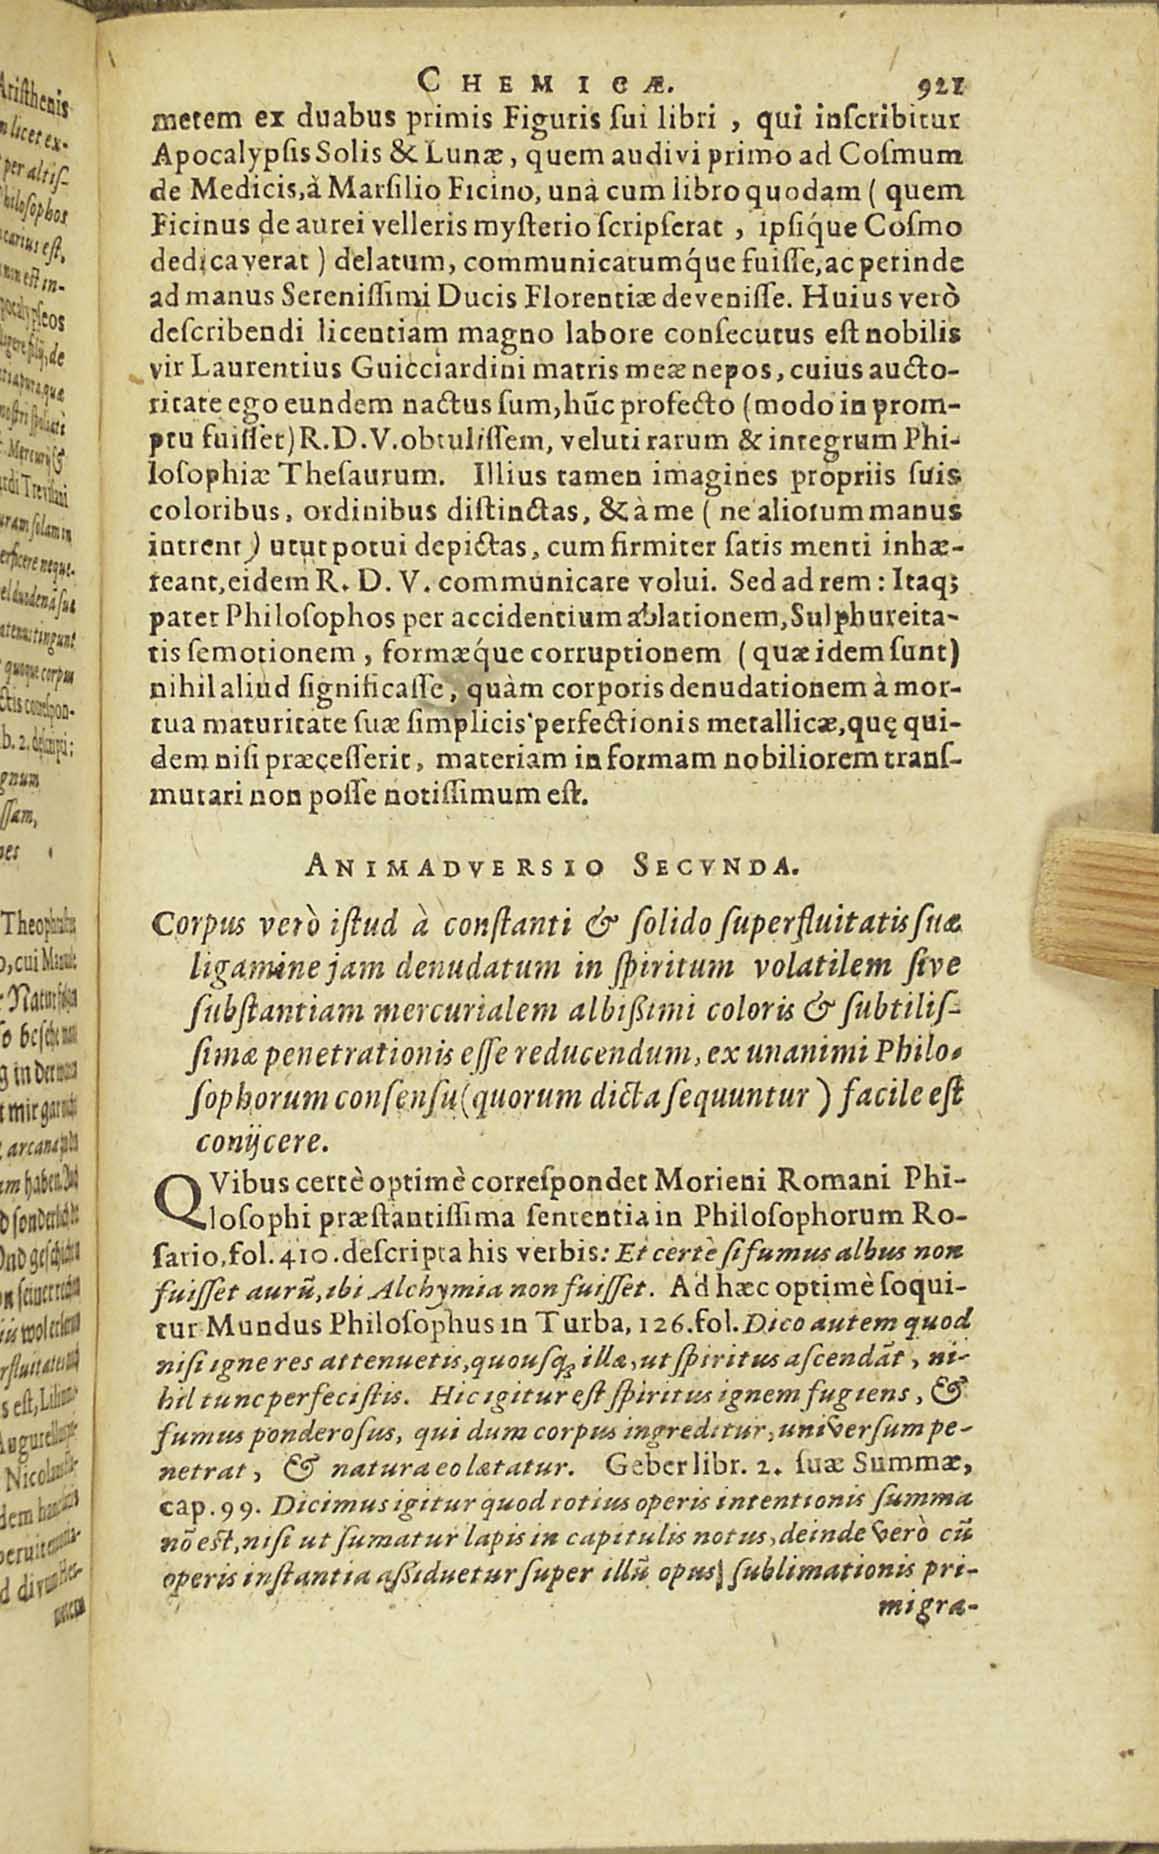 CHEMICÆ. 921
metem ex duabus primis Figuris ſui libri , qui inſcribitur
Apocalypſis Solis & Lunæ, quem audivi primo ad Coſmum
de Medicis, à Marſilio Ficino, unà cum libro quodam ( quem
Ficinus de aurei velleris myſterio ſcripſerat , ipſiq́ue Coſmo
dedicaverat ) delatum, communicatumq́ue fuiſſe, ac perinde
ad manus Sereniſſimi Ducis Florentiæ deveniſſe. Huius verò
deſcribendi licentiam magno labore conſecutus eſt nobilis
vir Laurentius Guicciardini matris meæ nepos, cuius aucto-
ritate ego eundem nactus ſum, hũc profecto (modo in prom-
ptu fuiſſet) R. D. V. obtuliſſem, veluti rarum & integrum Phi-
loſophiæ Theſaurum. Illius tamen imagines propriis ſuis
coloribus, ordinibus diſtinctas, & à me ( ne aliorum manus
intrent ) utut potui depictas, cum firmiter ſatis menti inhæ-
reant, eidem R. D. V. communicare volui. Sed ad rem : Itaq;
patet Philoſophos per accidentium ablationem, Sulphureita-
tis ſemotionem , formæq́ue corruptionem ( quæ idem ſunt)
nihil aliud ſignificaſſe, quàm corporis denudationem à mor-
tua maturitate ſuæ ſimplicis perfectionis metallicæ, quę qui-
dem niſi præceſſerit, materiam in formam nobiliorem tranſ-
mutari non poſſe notiſſimum eſt.
ANIMADVERSIO SECVNDA.
Corpus verò iſtud à conſtanti & ſolido ſuperfluitatis ſuæ
ligamine jam denudatum in ſpiritum volatilem ſive
ſubſtantiam mercurialem albißimi coloris & ſubtiliſ-
ſimæ penetrationis eſſe reducendum, ex unanimi Philo-
ſophorum conſenſu (quorum dicta ſequuntur ) facile eſt
conijcere.
QVibus certè optimè correſpondet Morieni Romani Phi-
loſophi præſtantiſſima ſententia in Philoſophorum Ro-
ſario, fol. 410. deſcripta his verbis: Et certè ſi fumus albus non
fuiſſet aurũ, ibi Alchymia non fuiſſet. Ad hæc optimè ſoqui-
tur Mundus Philoſophus in Turba, 126. fol. Dico autem quod
niſi igne res attenuetis, quouſq; illæ, ut ſpiritus aſcendãt, ni-
hil tunc perfeciſtis. Hic igitur eſt ſpiritus ignem fugiens, &
fumus ponderoſus, qui dum corpus ingreditur, univerſum pe-
netrat, & natura eo lætatur. Geber libr. 2. ſuæ Summæ,
cap. 99. Dicimus igitur quod totius operis intentionis ſumma
nõ eſt, niſi ut ſumatur lapis in capitulis notus, deinde verò cũ
operis inſtantia aſſiduetur ſuper illũ opus ſublimationis pri-
migra-